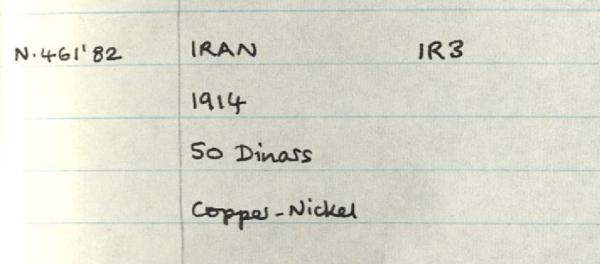 N.461'82 IRAN IR3
1914
50 Dinars
Copper-Nickel